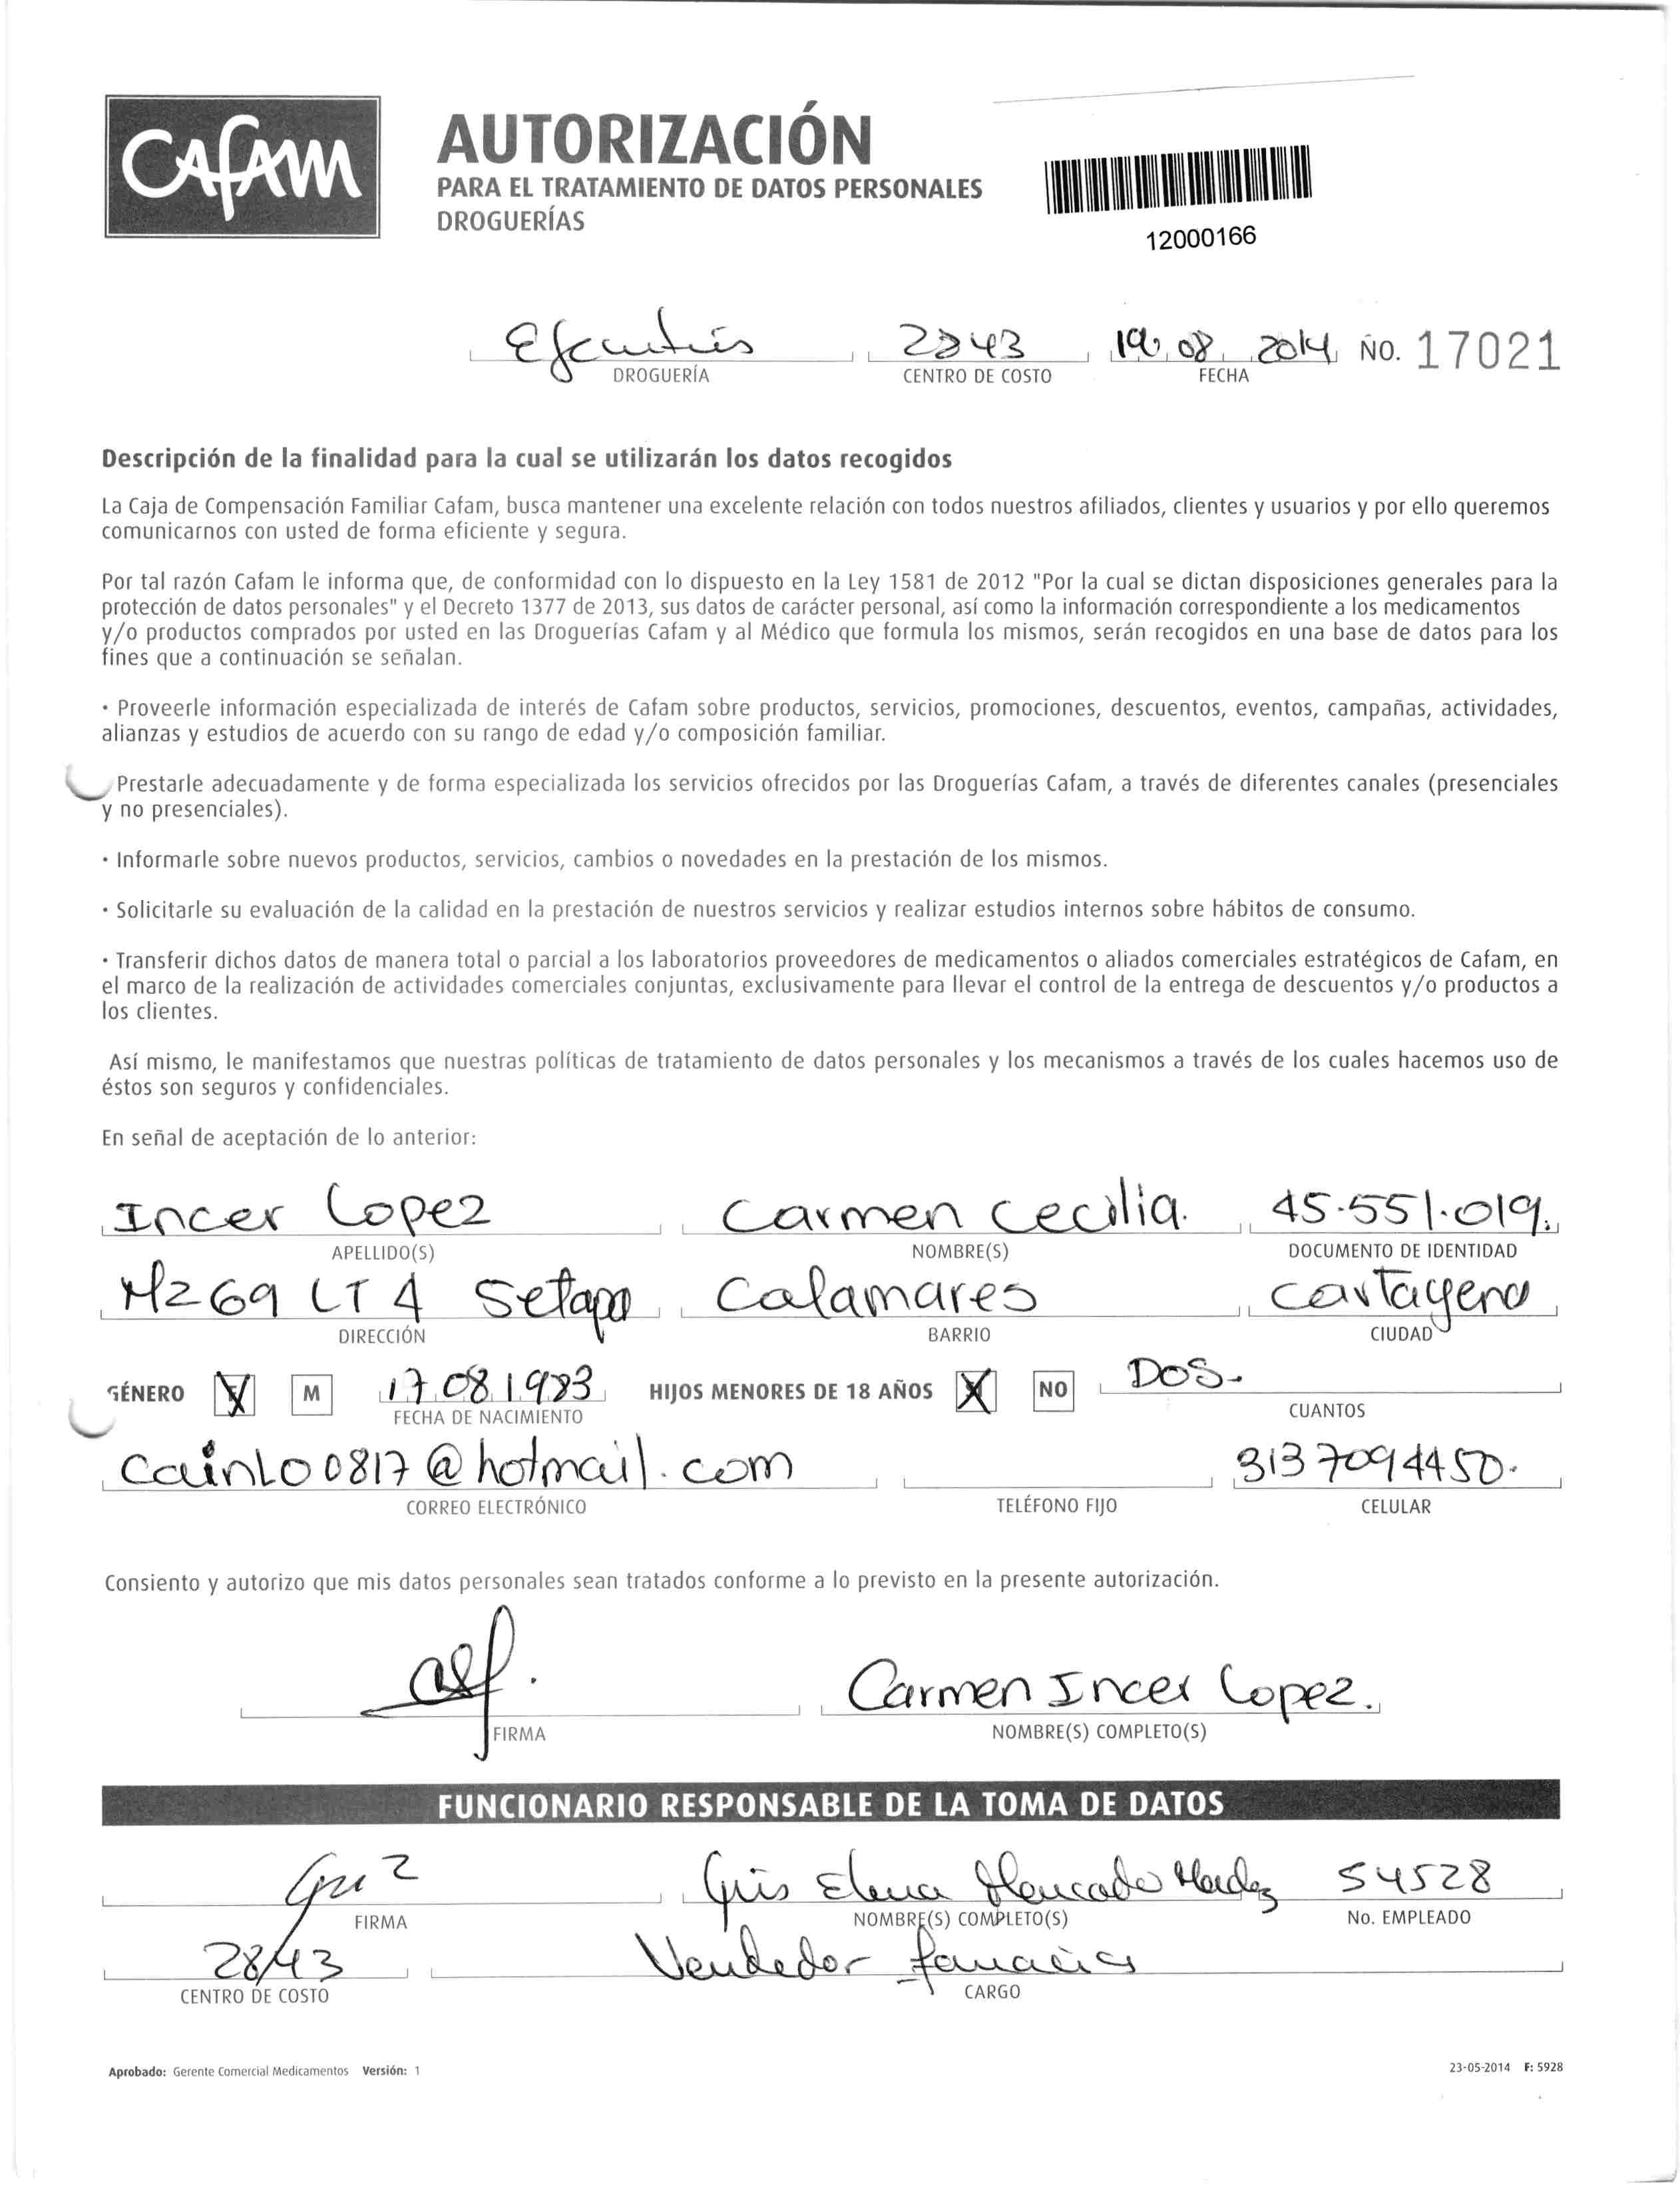 CAFAM
AUTORIZACIÓN
PARA EL TRATAMIENTO DE DATOS PERSONALES
DROGUERÍAS
12000166
2843 19 08 2014 No. 17021
DROGUERÍA CENTRO DE COSTO FECHA
Descripción de la finalidad para la cual se utilizarán los datos recogidos
La Caja de Compensación Familiar Cafam, busca mantener una excelente relación con todos nuestros afiliados, clientes y usuarios y por ello queremos
comunicarnos con usted de forma eficiente y segura.
Por tal razón Cafam le informa que, de conformidad con lo dispuesto en la Ley 1581 de 2012 "Por la cual se dictan disposiciones generales para la
protección de datos personales" y el Decreto 1377 de 2013, sus datos de carácter personal, así como la información correspondiente a los medicamentos
y/o productos comprados por usted en las Droguerías Cafam y al Médico que formula los mismos, serán recogidos en una base de datos para los
fines que a continuación se señalan.
• Proveerle información especializada de interés de Cafam sobre productos, servicios, promociones, descuentos, eventos, campañas, actividades,
alianzas y estudios de acuerdo con su rango de edad y/o composición familiar.
Prestarle adecuadamente y de forma especializada los servicios ofrecidos por las Droguerías Cafam, a través de diferentes canales (presenciales
y no presenciales).
• Informarle sobre nuevos productos, servicios, cambios o novedades en la prestación de los mismos.
• Solicitarle su evaluación de la calidad en la prestación de nuestros servicios y realizar estudios internos sobre hábitos de consumo.
• Transferir dichos datos de manera total o parcial a los laboratorios proveedores de medicamentos o aliados comerciales estratégicos de Cafam, en
el marco de la realización de actividades comerciales conjuntas, exclusivamente para llevar el control de la entrega de descuentos y/o productos a
los clientes.
Así mismo, le manifestamos que nuestras políticas de tratamiento de datos personales y los mecanismos a través de los cuales hacemos uso de
éstos son seguros y confidenciales.
En señal de aceptación de lo anterior:
Incer Lopez Carmen Cecilia. 45.551.019.
APELLIDO(S) NOMBRE(S) DOCUMENTO DE IDENTIDAD
Mz 69 LT 4 5etapa Calamares Cartagena
DIRECCIÓN BARRIO CIUDAD
GÉNERO F M 17 08 1983 HIJOS MENORES DE 18 AÑOS NO DOS.
FECHA DE NACIMIENTO CUANTOS
cainlo0817@hotmail.com 3137094450.
CORREO ELECTRÓNICO TELÉFONO FIJO CELULAR
Consiento y autorizo que mis datos personales sean tratados conforme a lo previsto en la presente autorización.
Carmen Incer Lopez.
FIRMA NOMBRE(S) COMPLETO(S)
FUNCIONARIO RESPONSABLE DE LA TOMA DE DATOS
Elena 54528
FIRMA NOMBRE(S) COMPLETO(S) No. EMPLEADO
2843 Vendedor
CENTRO DE COSTO CARGO
Aprobado: Gerente Comercial Medicamentos Versión: 1 23-05-2014 F: 5928